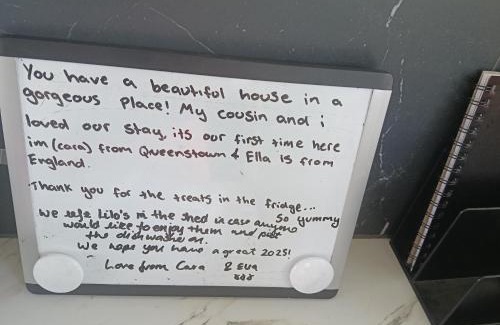 You have a beautiful house in a
gorgeous place! My cousin and i
loved our stay, its our first time here
im (cara) from Queenstown & Ella is from
England.
Thank you for the treats in the fridge...
So yummy
We left Lilo's in the shed in case anyone
would like to enjoy them and put
the dishwasher on.
We hope you have a great 2025!
Love from Cara & Ella